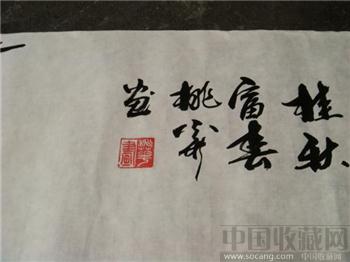 桂秋
富春
桃華
画
中国收藏网
http://www.socang.com 中国收藏网